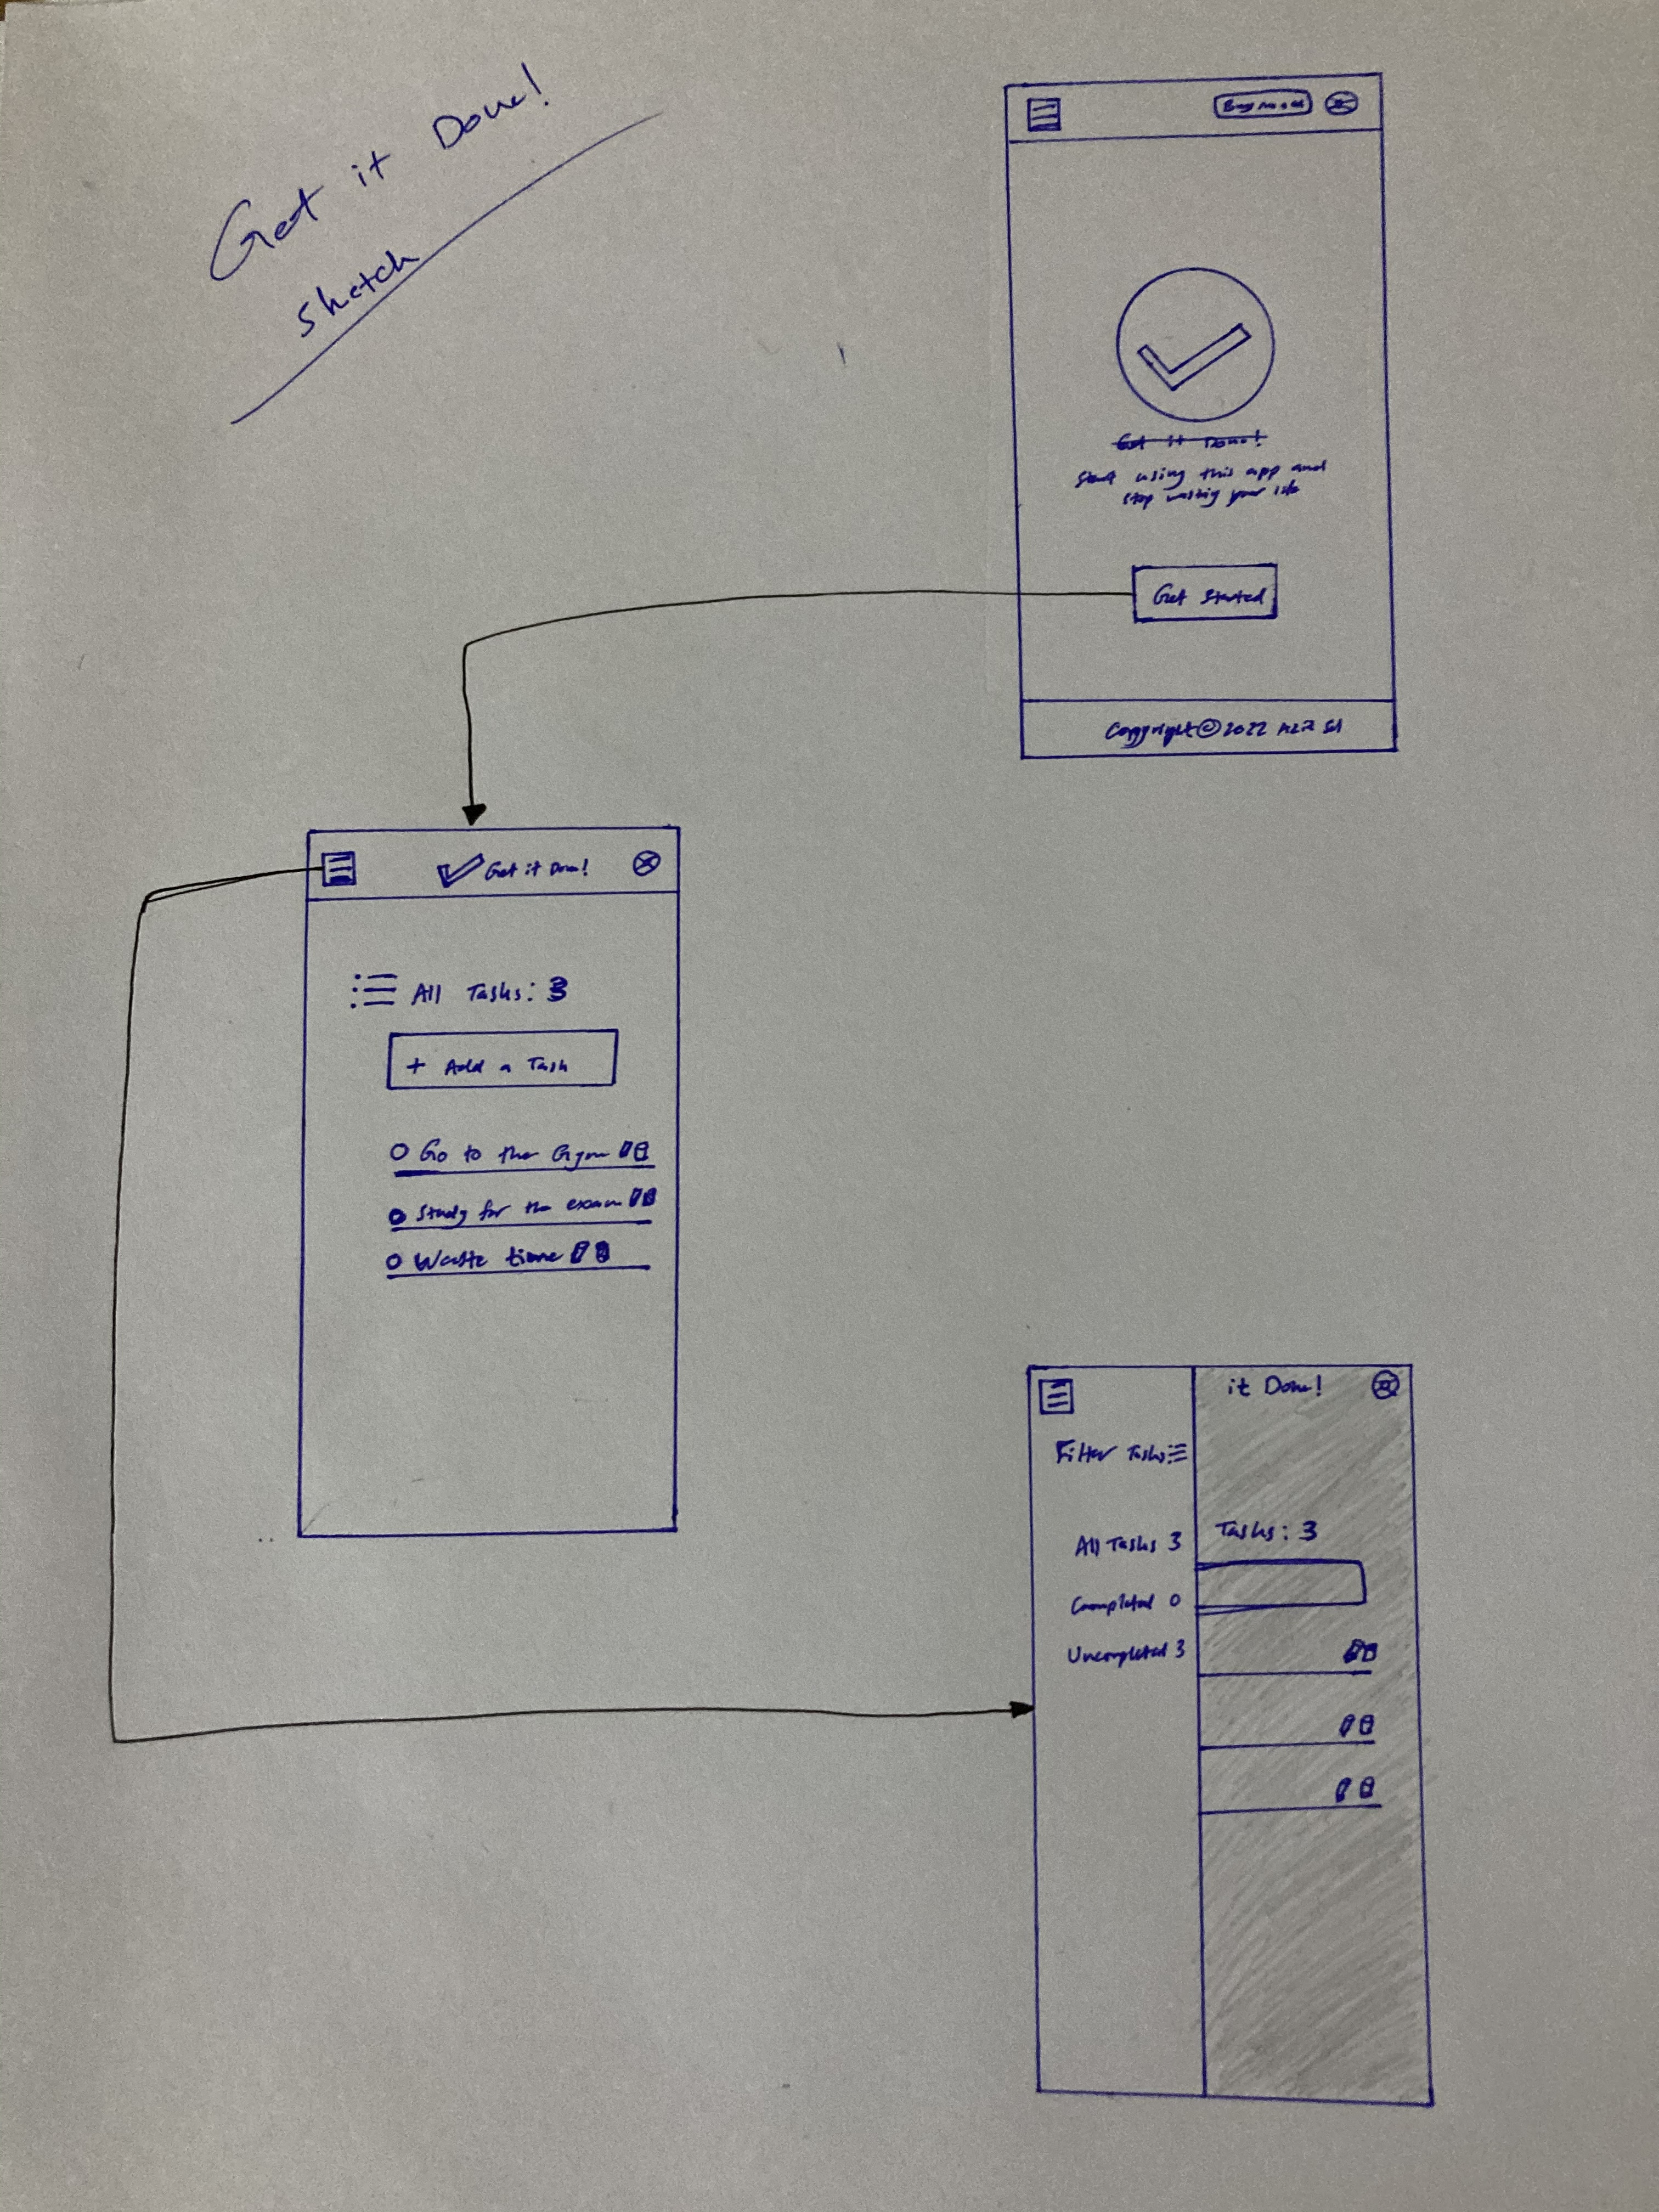 Get it Done!
Sketch
Buy me a
Get it Done!
Start using this app and
stop wasting your
Get Started
Copyright © 2022
Get it Done!
All Tasks: 3
+ Add a Task
Go to the Gym
Study for the exam
Waste time
it Done!
Filter Tasks
All Tasks 3
Tasks: 3
Completed 0
Uncompleted 3